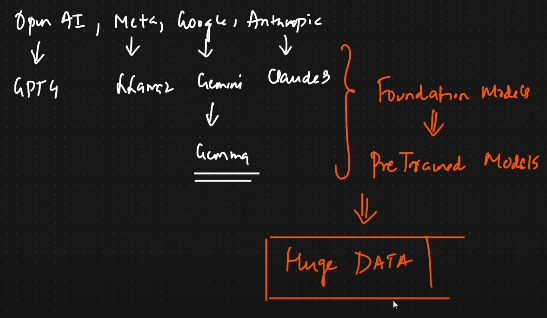 Open AI, Meta, Google, Anthropic
GPT4 LLama2 Gemini Claude3
Gemma
Foundation Models
PreTrained Models
Huge DATA